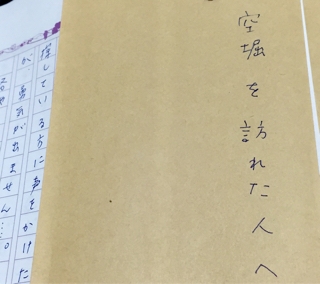 空堀を訪れた人へ
探している方に声をかけた
か 勇気が出ません…。